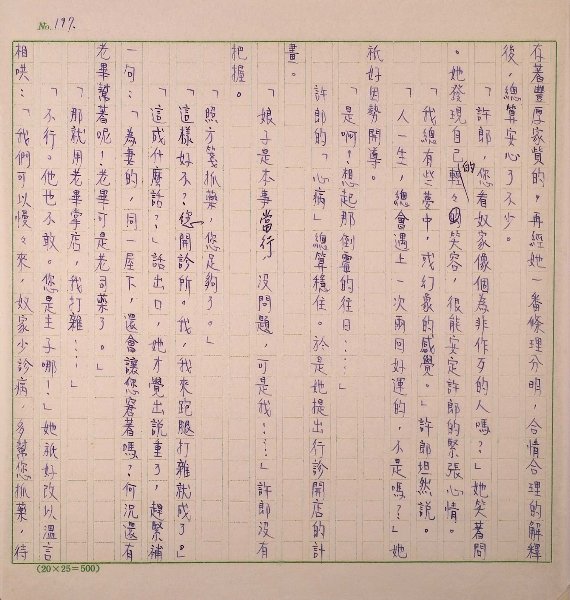 No. 197.
存著豐厚家貲的。再經她一番條理分明，合情合理的解釋
後，總算安心了不少。
「許郎，您看奴家像個為非作歹的人嗎？」她笑著問
。她發現自己輕々的笑容，很能安定許郎的緊張心情。
「我總有些夢中，或幻象的感覺。」許郎坦然說。
「人一生，總會遇上一次兩回好運的，不是嗎？」她
祇好因勢開導。
「是啊！想起那倒霉的往日……」
許郎的「心病」總算穩住。於是她提出行診開店的計
畫。
「娘子是本事當行，沒問題，可是我！……」許郎沒有
把握。
「照方箋抓藥，您足夠了。」
「這樣好不？您開診所。我，我來跑腿打雜就成了。」
「這成什麼話？」話出口，她才覺出說重了，趕緊補
一句：「為妻的，同一屋下，還會讓您窘著嗎？何況還有
老畢幫著呢！老畢可是老司藥了。」
「那就用老畢掌店，我打雜……」
「不行。他也不敢。您是主子哪！」她祇好改以溫言
相哄：「我們可以慢々來，奴家少診病，多幫您抓藥，待
(20×25=500)